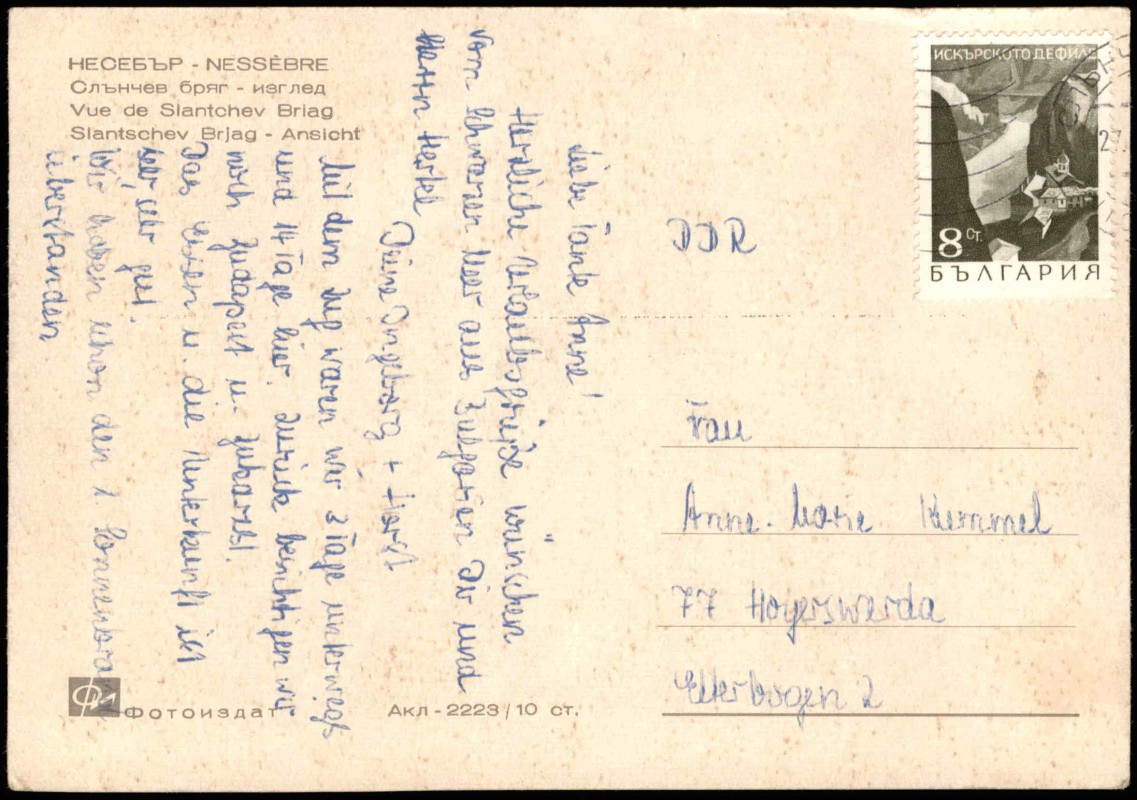 НЕСЕБЪР - NESSÈBRE
Слънчев бряг - изглед
Vue de Slantchev Briag
Slantschev Brjag - Ansicht
Liebe Tante Anne!
Herzliche Urlaubsgrüße wünschen
vom schwarzen Meer aus Bulgarien Dir und
Herrn Hertel
Deine Ingeborg + Horst
Mit dem Zug waren wir 3 Tage unterwegs
und 14 Tage hier. Zurück besichtigen wir
noch Budapest u. Bukarest!
Das Essen u. die Unterkunft ist
sehr, sehr gut.
Wir haben schon den 1. Sonnenbrand
überstanden.
ИСКЪРСКОТО ДЕФИЛЕ
8 СТ.
БЪЛГАРИЯ
DDR
Frau
Anne-Marie
77 Hoyerswerda
Elterbogen 2
Фотоиздат
Акл - 2223 / 10 ст.